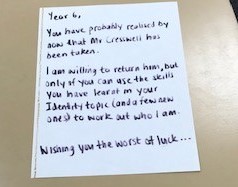 Year 6,
You have probably realised by
now that Mr Cresswell has
been taken.
I am willing to return him, but
only if you can use the skills
you have learnt in your
Identity topic (and a few new
ones) to work out who I am.
Wishing you the worst of luck...